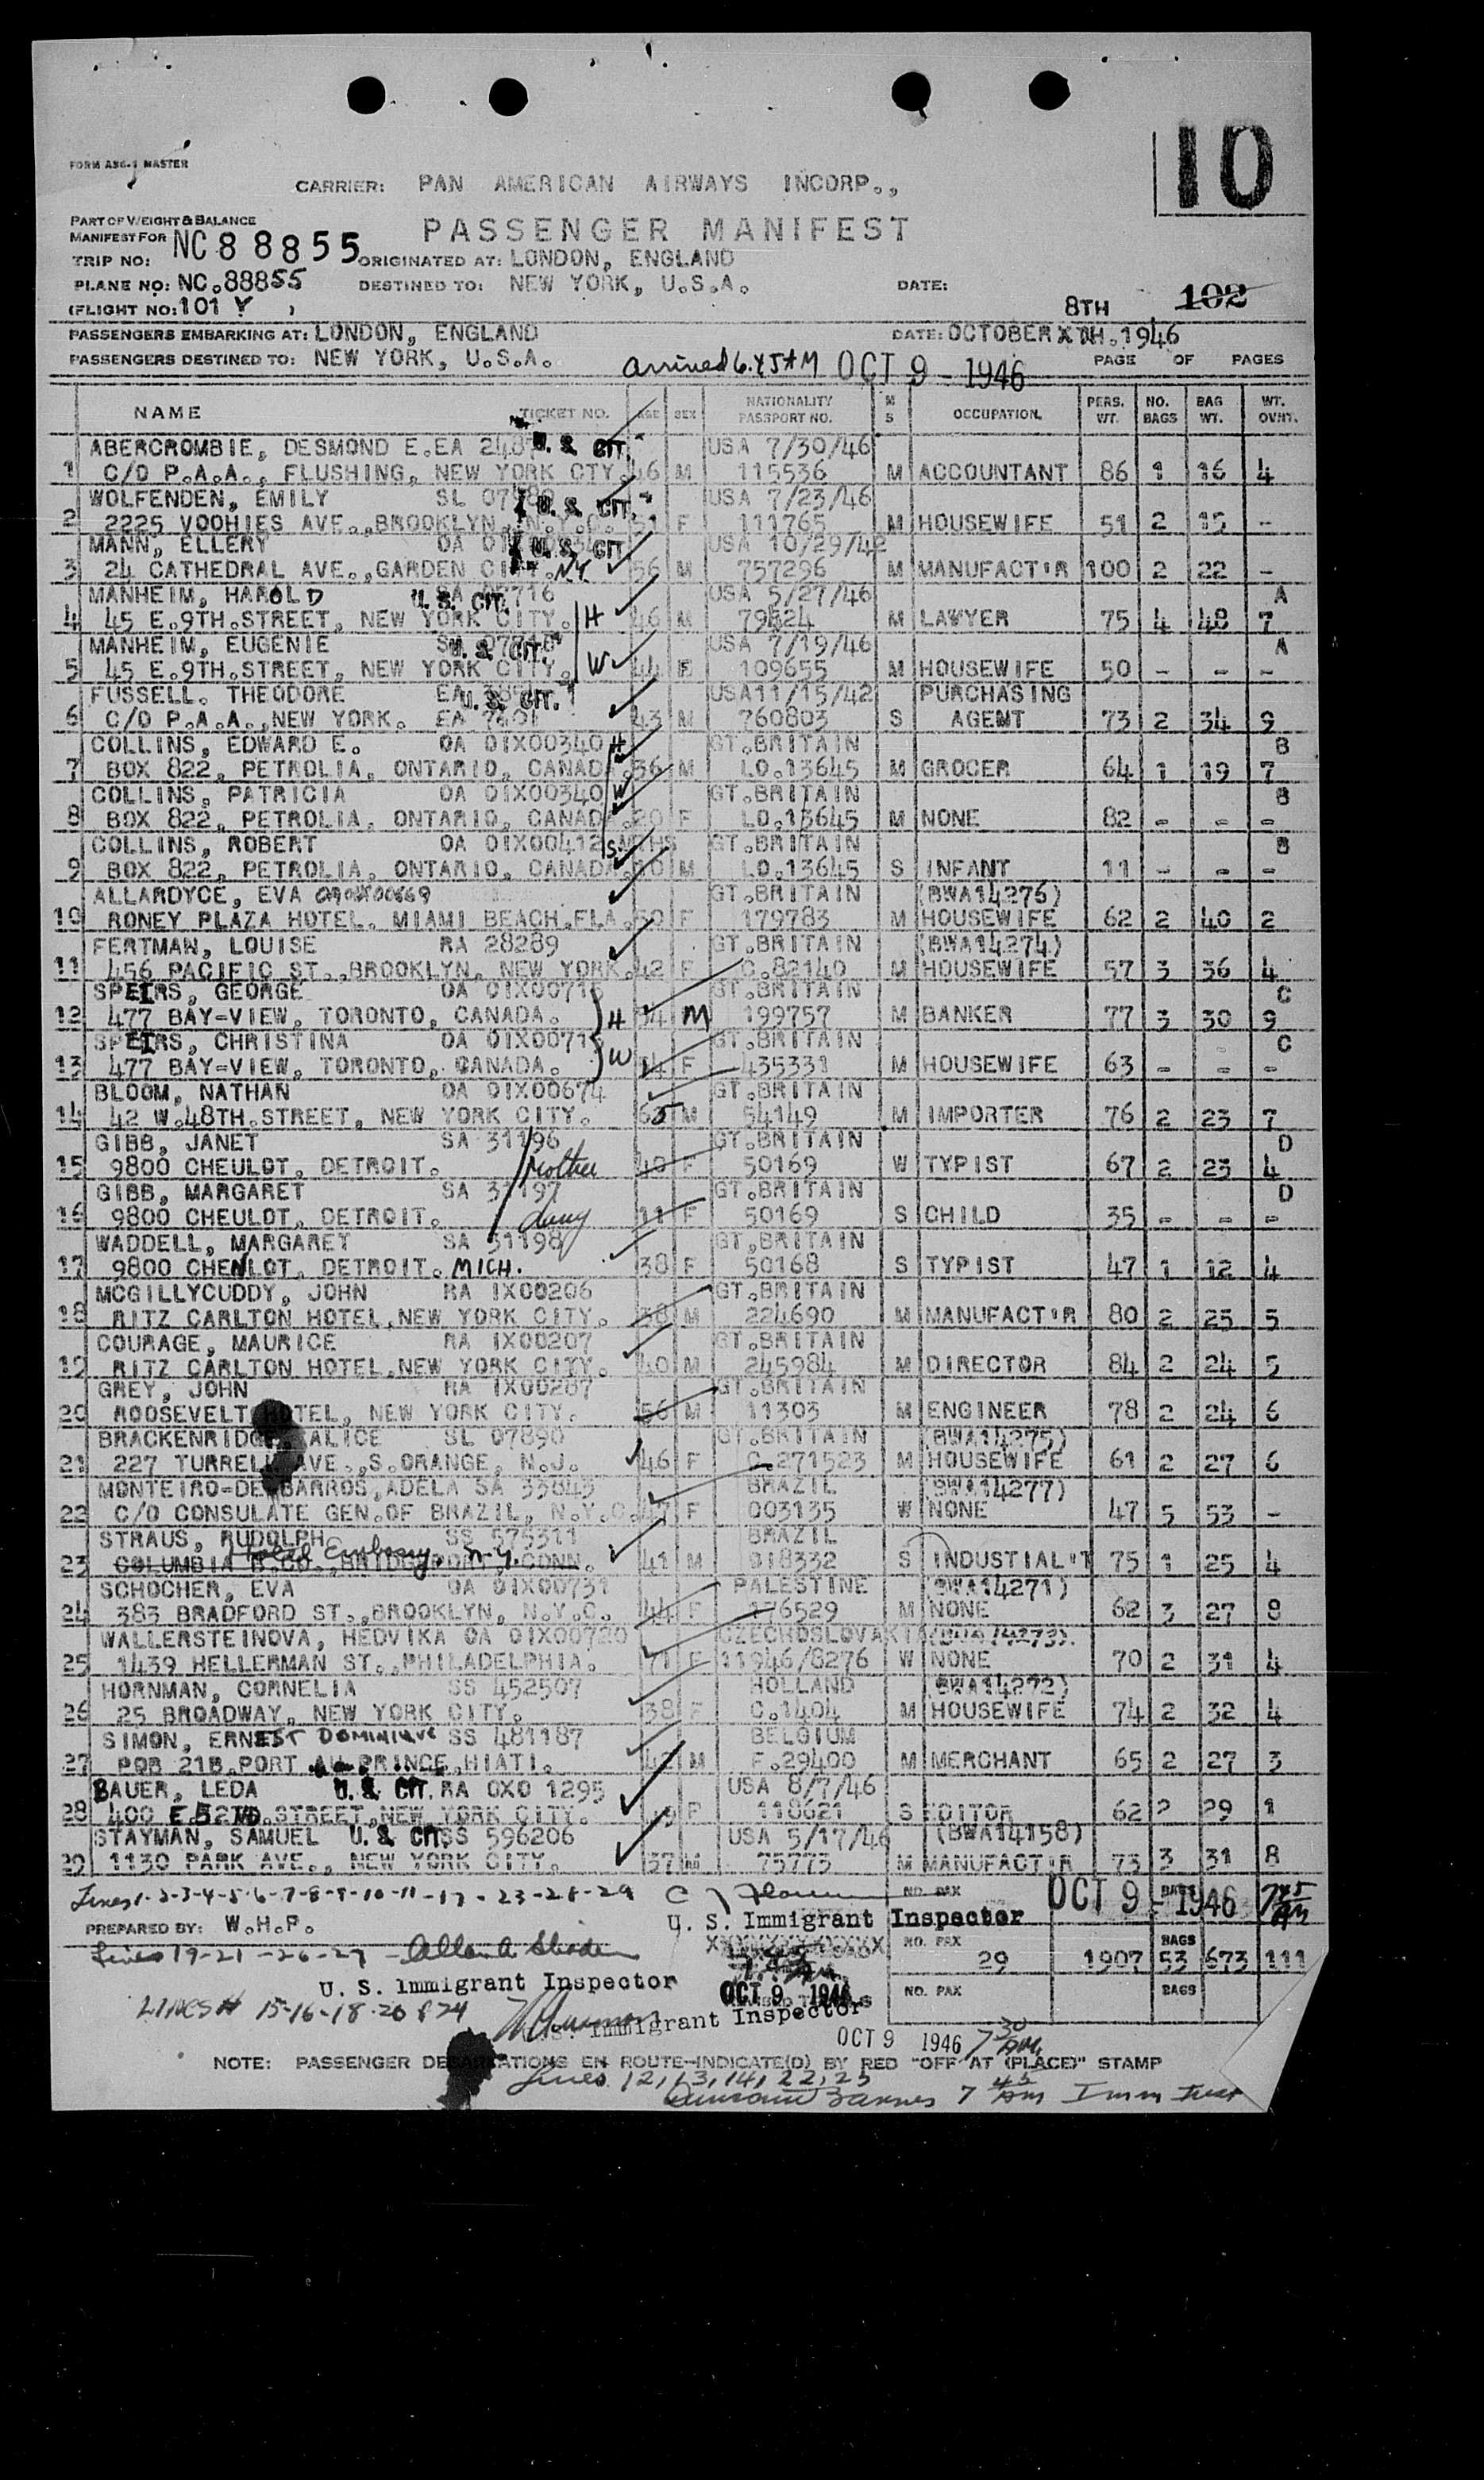 10
FORM AS6-1 MASTER
CARRIER: PAN AMERICAN AIRWAYS INCORP.,
PART OF WEIGHT & BALANCE
MANIFEST FOR NC88855
PASSENGER MANIFEST
TRIP NO: ORIGINATED AT: LONDON, ENGLAND
PLANE NO: NC.88855 DESTINED TO: NEW YORK, U.S.A. DATE:
(FLIGHT NO: 101 Y ) 8TH 102
PASSENGERS EMBARKING AT: LONDON, ENGLAND DATE: OCTOBER XTH.1946
PASSENGERS DESTINED TO: NEW YORK, U.S.A. arrived 6.45AM OCT 9 - 1946 PAGE OF PAGES
NAME TICKET NO. AGE SEX NATIONALITY PASSPORT NO. M S OCCUPATION. PERS. WT. NO. BAGS BAG WT. WT. OVHT.
ABERCROMBIE, DESMOND E. EA U. S. CIT. USA 7/30/46
1 C/O P.A.A., FLUSHING, NEW YORK CTY. 46 M 115536 M ACCOUNTANT 86 1 16 4
WOLFENDEN, EMILY SL U. S. CIT. USA 7/23/46
2 2225 VOOHIES AVE.,BROOKLYN, N.Y.C. 51 F 111765 M HOUSEWIFE 51 2 15 -
MANN, ELLERY OA U. S. CIT USA 10/29/42
3 24 CATHEDRAL AVE.,GARDEN CITY. N.Y. 56 M 757296 M MANUFACT'R 100 2 22 -
MANHEIM, HAROLD U. S. CIT. USA 5/27/46 A
4 45 E.9TH.STREET, NEW YORK CITY. H 46 M M LAWYER 75 4 48 7
MANHEIM, EUGENIE U. S. CIT. USA 7/19/46 A
5 45 E.9TH.STREET, NEW YORK CITY. W 44 F 109655 M HOUSEWIFE 50 - - -
FUSSELL. THEODORE EA U. S. CIT. USA11/15/42 PURCHASING
6 C/O P.A.A.,NEW YORK. EA 43 M 760803 S AGENT 73 2 34 9
COLLINS, EDWARD E. OA 01X00340 H GT.BRITAIN B
7 BOX 822, PETROLIA, ONTARIO, CANADA. 36 M LO.13645 M GROCER 64 1 19 7
COLLINS, PATRICIA OA 01X00340 W GT.BRITAIN B
8 BOX 822, PETROLIA, ONTARIO, CANADA. 20 F LO.13645 M NONE 82 - - -
COLLINS, ROBERT OA 01X00412 S MTHS GT.BRITAIN B
9 BOX 822, PETROLIA, ONTARIO, CANADA. 10 M LO.13645 S INFANT 11 - - -
ALLARDYCE, EVA OA01X00669 GT.BRITAIN (BWA14276)
10 RONEY PLAZA HOTEL. MIAMI BEACH.FLA. 50 F 179783 M HOUSEWIFE 62 2 40 2
FERTMAN, LOUISE RA 28289 GT.BRITAIN (BWA14274)
11 456 PACIFIC ST.,BROOKLYN, NEW YORK. 42 F C.82140 M HOUSEWIFE 57 3 36 4
SPEIRS, GEORGE OA 01X00715 GT.BRITAIN C
12 477 BAY-VIEW, TORONTO, CANADA. H 54 M 199757 M BANKER 77 3 30 9
SPEIRS, CHRISTINA OA 01X00715 GT.BRITAIN C
13 477 BAY-VIEW, TORONTO, CANADA. W F 435331 M HOUSEWIFE 63 - - -
BLOOM, NATHAN OA 01X00674 GT.BRITAIN
14 42 W.48TH.STREET, NEW YORK CITY. 65 M 54149 M IMPORTER 76 2 23 7
GIBB, JANET SA 31196 GT.BRITAIN D
15 9800 CHEULOT, DETROIT. Mother 40 F 50169 W TYPIST 67 2 23 4
GIBB, MARGARET SA 31197 GT.BRITAIN D
16 9800 CHEULOT, DETROIT. 11 F 50169 S CHILD 35 - - -
WADDELL, MARGARET SA 31198 GT.BRITAIN
17 9800 CHENLOT, DETROIT. MICH. 38 F 50168 S TYPIST 47 1 12 4
MCGILLYCUDDY, JOHN RA 1X00206 GT.BRITAIN
18 RITZ CARLTON HOTEL,NEW YORK CITY. 38 M 224690 M MANUFACT'R 80 2 25 5
COURAGE, MAURICE RA 1X00207 GT.BRITAIN
19 RITZ CARLTON HOTEL,NEW YORK CITY. 40 M 245984 M DIRECTOR 84 2 24 5
GREY, JOHN RA 1X00287 GT.BRITAIN
20 ROOSEVELT HOTEL, NEW YORK CITY. 56 M 11303 M ENGINEER 78 2 24 6
BRACKENRIDGE, ALICE SL 07890 GT.BRITAIN (BWA14275)
21 227 TURRELL AVE.,S.ORANGE, N.J. 46 F C.271523 M HOUSEWIFE. 61 2 27 6
MONTEIRO-DE-BARROS,ADELA SA 33043 BRAZIL (BWA14277)
22 C/O CONSULATE GEN.OF BRAZIL, N.Y.C. 47 F 003135 W NONE 47 5 53 -
STRAUS, RUDOLPH SS 575311 BRAZIL
23 COLUMBIA R.CO.,BRIDGEPORT, CONN. Embassy, N.Y. 41 M 018332 S INDUSTIAL'T 75 1 25 4
SCHOCHER, EVA OA 01X00731 PALESTINE (BWA14271)
24 383 BRADFORD ST.,BROOKLYN, N.Y.C. 44 F 176529 M NONE 62 3 27 8
WALLERSTEINOVA, HEDVIKA OA 01X00720 CZECHOSLOVAKIA (BWA14273).
25 1439 HELLERMAN ST.,PHILADELPHIA. 71 F 11946/8276 W NONE 70 2 31 4
HORNMAN, CORNELIA SS 452507 HOLLAND (BWA14272)
26 25 BROADWAY, NEW YORK CITY. 38 F C.1404 M HOUSEWIFE 74 2 32 4
SIMON, ERNEST DOMINIQUE SS 481187 BELGIUM
27 POB 21B.PORT AU PRINCE,HIATI. 42 M F.29400 M MERCHANT 65 2 27 3
BAUER, LEDA U. S. CIT. RA OXO 1295 USA 8/7/46
28 400 E.52ND.STREET,NEW YORK CITY. 49 F 118621 S EDITOR 62 2 29 1
STAYMAN, SAMUEL U. S. CIT. SS 596206 USA 5/17/46 (BWA14158)
29 1130 PARK AVE., NEW YORK CITY. 37 M 75773 M MANUFACT'R 73 3 31 8
Lines 1-2-3-4-5-6-7-8-9-10-11-17-23-28-29 NO. PAX BAGS OCT 9 - 1946 7 45 AM
PREPARED BY: W.H.P. U. S. Immigrant Inspector
XXXXXXXXXXXX NO. PAX 29 1907 BAGS 53 673 111
Lines 19-21-26-27
U. S. Immigrant Inspector OCT 9 1946 NO. PAX BAGS
LINES # 15-16-18-20 & 24 U.S. Immigrant Inspector
OCT 9 1946 7 30 AM.
NOTE: PASSENGER DEBARKATIONS EN ROUTE-INDICATE(D) BY RED "OFF AT (PLACE)" STAMP
Lines 12, 13, 14, 22, 25
7 45 AM Imm Insp